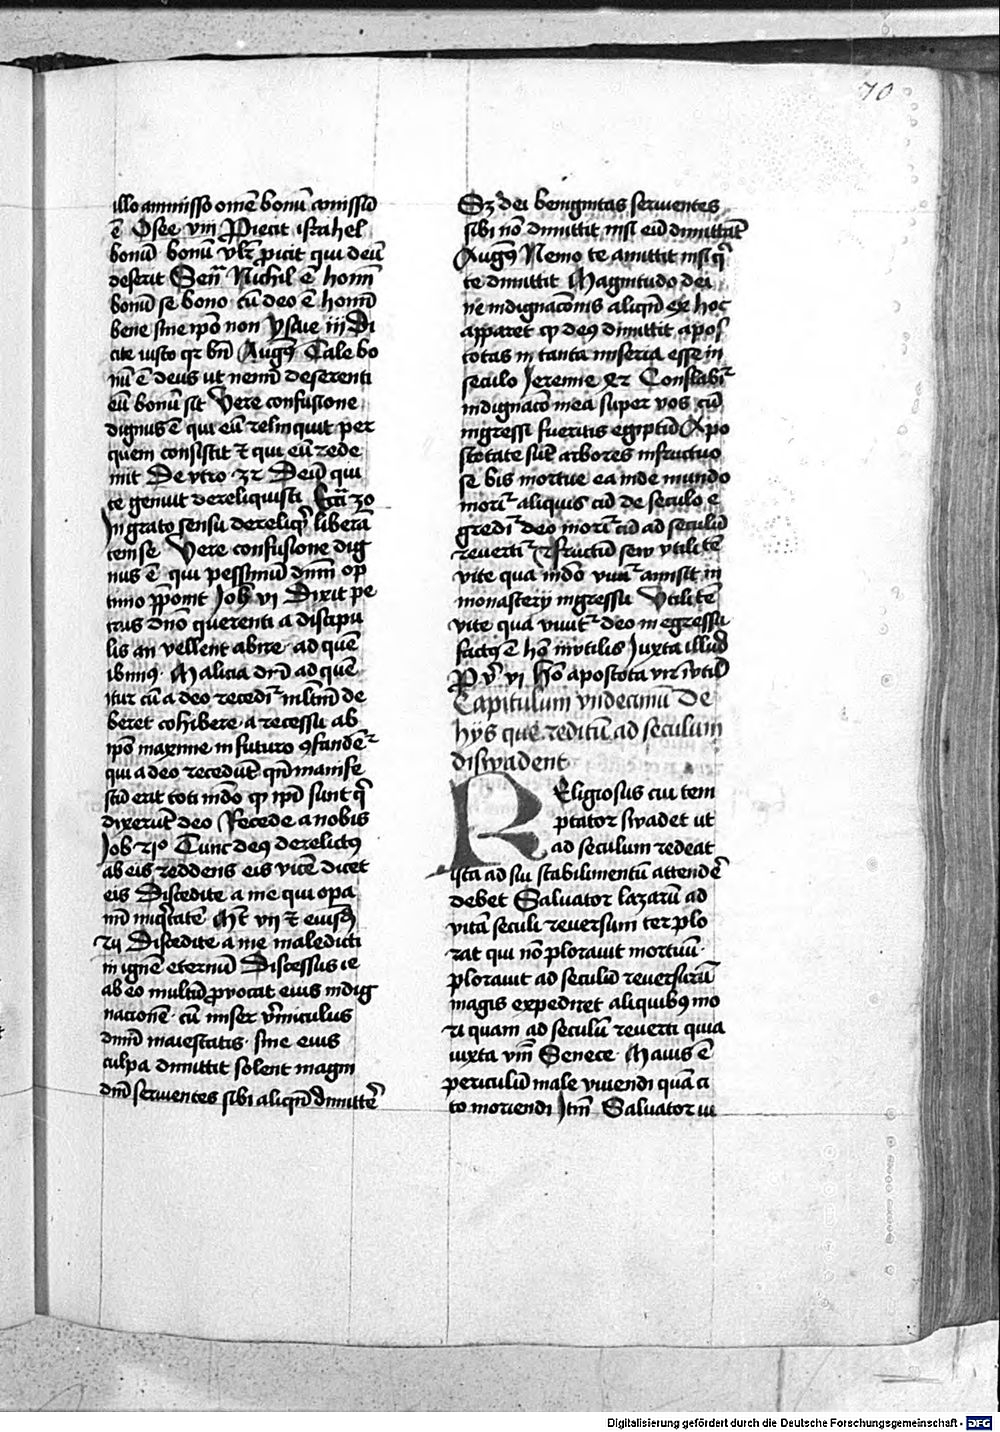 70
illo amisso omē bonū amissū
ē Osee viii Proiecit israhel
bonū bonū vltr̄ proicit qui deū
deserit Sen̄ Nichil ē homī
bonū se bono cū deo ē homī
bene sine ipō non ysaie iii Di
cite iusto qr bn̄ Augꝰ Tale bo
nū ē deus ut nemī deserenti
eū bonū sit Vere confusione
dignus ē qui eū relinquit per
quem consistit et qui eū rede
mit Deutro 32 Deū qui
te genuit dereliquisti 
Ingrato sensu derelīq̄ liberā
tem se Vere confusione dig
nus ē qui pessimū dnm̄ op
timo p̄ponit Joh̄ vi Dixit pe
trus dnō querenti a discipu
lis an vellent abire ad quē
ibimꝰ Malicia dn̄i ad quē
itur cū a deo recedit̄ mltm̄ de
beret cohibere a recessu ab
ipō maxime in futuro ꝯfundēt̄
qui a deo recedūt qn̄ manife
stū erit toti mūdo qꝫ ipī sunt q̄
dixerūt deo Recede a nobis
Job 21º Tunc deꝰ derelictꝰ
ab eis reddens eis vicē dicet
eis Discedite a me qui opa
mī iniq̄tatē Mt̄ vii et eiusdē
25 Discedite a me maledicti
in ignē eternū Discessus iē
ab eo multū ꝓuocat eius indig
nacionē cū miser v̄miculus
dnm̄ maiestatis sine eius
culpa dimittit solent magni
dnī seruientes sibi aliqn̄ dimittē̄
Sꝫ dei benignitas seruientes
sibi nō dimittit nisi eū dimittāt
Augꝰ Nemo te amittit nisi q̄
te dimittit Magnitudo dei
ne indignacōnis aliqn̄ ex hoc
apparet qꝫ deꝰ dimittit apos
totas in tanta miseria esse in
seculo Jeremie 42 Constabit̄
indignacō mea super vos cū
ingressi fueritis egiptū Apo
stotate sūt arbores infructuo
se bis mortue ea inde mundo
morit̄ aliquis cū de seculo e
gredit̄ deo morit̄ cū ad seculū
revertit̄ et fructū seu vtilitē
vite qua mūdo viuit̄ amisit in
monasterij ingressu Vtilitē
vite qua viuit̄ deo in egressu
factꝰ ē hō invtilis Juxta illud
P̄v̄ vi Hō apostota vir īvtil
Capitulum vndecimū De
hys que reditū ad seculum
diswadent
Religiosus cui tem
ptator swadet ut
ad seculum redeat
ista ad sui stabilimentū attendē
debet Saluator lazarū ad
vitā seculi reuersum ter plo
rat qui nō plorauit mortuū
plorauit ad seculū reuersurū
magis expediret aliquibꝰ mo
ri quam ad seculū reuerti quia
iuxta vm̄ Senece Mauis ē
periculū male viuendi quā ci
to moriendi Itm̄ Saluator iu
Digitalisierung gefördert durch die Deutsche Forschungsgemeinschaft - DFG